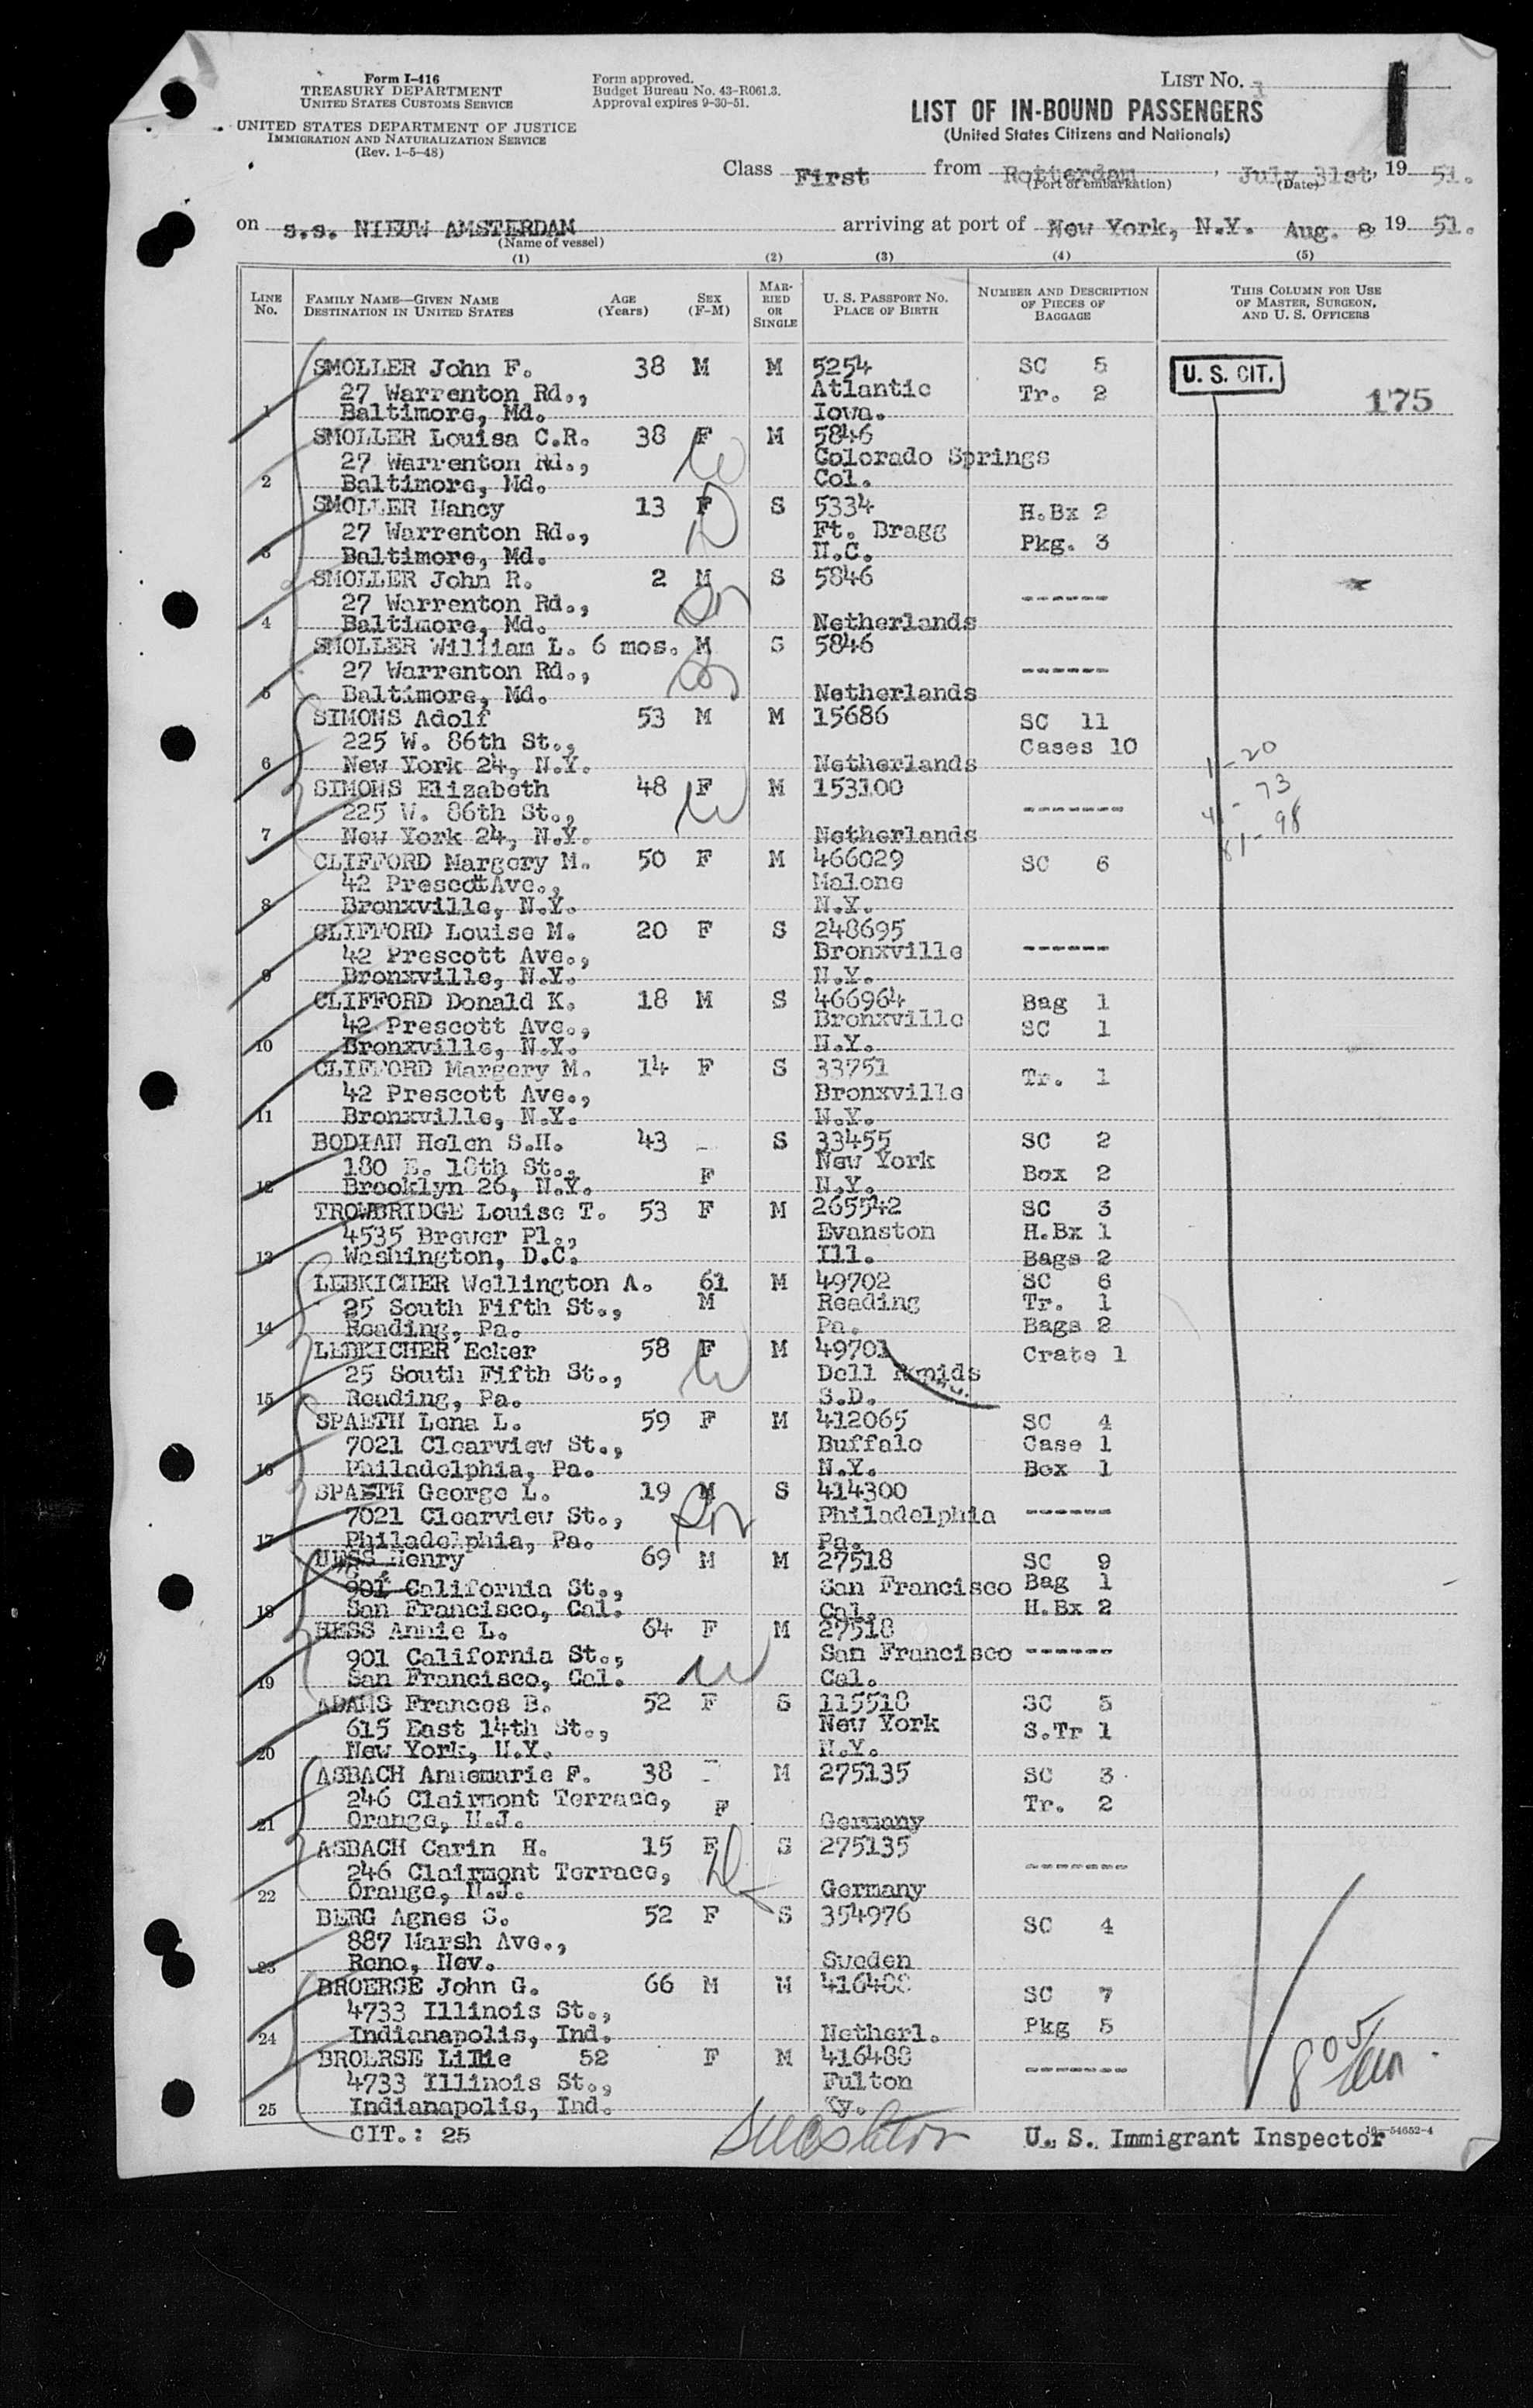 Form I-416
TREASURY DEPARTMENT
UNITED STATES CUSTOMS SERVICE
UNITED STATES DEPARTMENT OF JUSTICE
IMMIGRATION AND NATURALIZATION SERVICE
(Rev. 1-5-48)
Form approved.
Budget Bureau No. 43-R061.3.
Approval expires 9-30-51.
LIST NO.
LIST OF IN-BOUND PASSENGERS
(United States Citizens and Nationals)
Class First from Rotterdam, July 31st, 19 51.
(Port of embarkation) (Date)
on s.s. NIEUW AMSTERDAM arriving at port of New York, N.Y. Aug. 8 19 51.
(Name of vessel)
(1) (2) (3) (4) (5)
LINE NO. FAMILY NAME—GIVEN NAME DESTINATION IN UNITED STATES AGE (Years) SEX (F-M) MARRIED OR SINGLE U. S. PASSPORT NO. PLACE OF BIRTH NUMBER AND DESCRIPTION OF PIECES OF BAGGAGE THIS COLUMN FOR USE OF MASTER, SURGEON, AND U. S. OFFICERS
SMOLLER John F. 38 M M 5254 SC 5 U. S. CIT.
27 Warrenton Rd., Atlantic Tr. 2 175
1 Baltimore, Md. Iowa.
SMOLLER Louisa C.R. 38 F M 5846
27 Warrenton Rd., Colorado Springs
2 Baltimore, Md. Col.
SMOLLER Nancy 13 F S 5334 H.Bx 2
27 Warrenton Rd., Ft. Bragg
3 Baltimore, Md. N.C. Pkg. 3
SMOLLER John R. 2 M S 5846
27 Warrenton Rd., ------
4 Baltimore, Md. Netherlands
SMOLLER William L. 6 mos. M S 5846
27 Warrenton Rd., ------
5 Baltimore, Md. Netherlands
SIMONS Adolf 53 M M 15686 SC 11
225 W. 86th St., Cases 10
6 New York 24, N.Y. Netherlands 1-20
SIMONS Elizabeth 48 F M 153100 73
225 W. 86th St., ------ 98
7 New York 24, N.Y. Netherlands
CLIFFORD Margery M. 50 F M 466029 SC 6
42 Prescott Ave., Malone
8 Bronxville, N.Y. N.Y.
CLIFFORD Louise M. 20 F S 248695
42 Prescott Ave., Bronxville ------
9 Bronxville, N.Y. N.Y.
CLIFFORD Donald K. 18 M S 466964 Bag 1
42 Prescott Ave., Bronxville SC 1
10 Bronxville, N.Y. N.Y.
CLIFFORD Margery M. 14 F S 33751 Tr. 1
42 Prescott Ave., Bronxville
11 Bronxville, N.Y. N.Y.
BODIAN Helen S.H. 43 - S 33455 SC 2
180 E. 18th St., F New York Box 2
12 Brooklyn 26, N.Y. N.Y.
TROWBRIDGE Louise T. 53 F M 265542 SC 3
4535 Brewer Pl., Evanston H.Bx 1
13 Washington, D.C. Ill. Bags 2
LEBKICHER Wellington A. 61 M 49702 SC 6
25 South Fifth St., M Reading Tr. 1
14 Reading, Pa. Pa. Bags 2
LEBKICHER Ecker 58 F M 49701 Crate 1
25 South Fifth St., Dell Rapids
15 Reading, Pa. S.D.
SPAETH Lena L. 59 F M 412065 SC 4
7021 Clearview St., Buffalo Case 1
16 Philadelphia, Pa. N.Y. Box 1
SPAETH George L. 19 M S 414300
7021 Clearview St., Philadelphia ------
17 Philadelphia, Pa. Pa.
HESS Henry 69 M M 27518 SC 9
901 California St., San Francisco Bag 1
18 San Francisco, Cal. Cal. H.Bx 2
HESS Annie L. 64 F M 27518
901 California St., San Francisco ------
19 San Francisco, Cal. Cal.
ADAMS Frances B. 52 F S 115518 SC 5
615 East 14th St., New York S.Tr 1
20 New York, N.Y. N.Y.
ASBACH Annemarie F. 38 - M 275135 SC 3
246 Clairmont Terrace, F Tr. 2
21 Orange, N.J. Germany
ASBACH Carin H. 15 F S 275135
246 Clairmont Terrace, ------
22 Orange, N.J. Germany
BERG Agnes S. 52 F S 354976 SC 4
887 Marsh Ave.,
23 Reno, Nev. Sweden
BROERSE John G. 66 M M 416488 SC 7
4733 Illinois St., Pkg 5
24 Indianapolis, Ind. Netherl.
BROERSE Lillie 52 F M 416488
4733 Illinois St., Fulton ------
25 Indianapolis, Ind. Ky.
CIT.: 25 U. S. Immigrant Inspector 16-54652-4